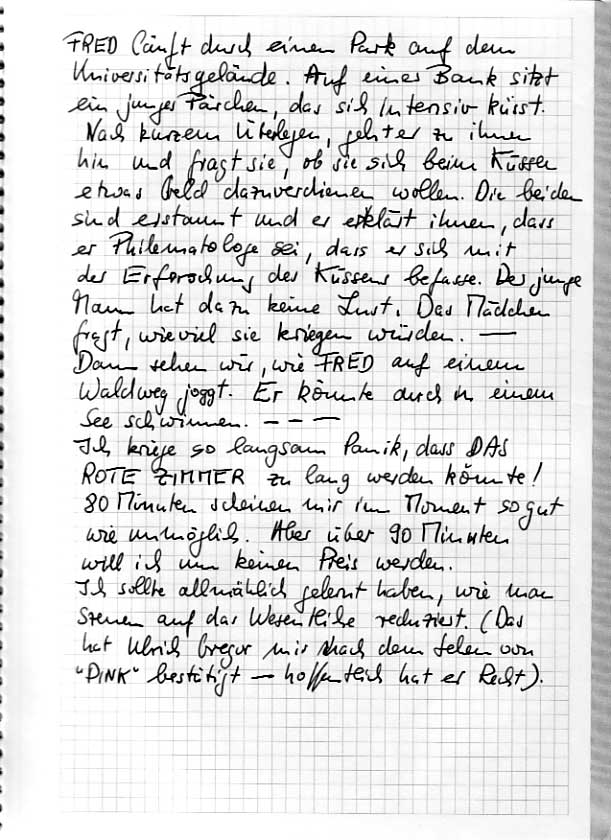 FRED läuft durch einen Park auf dem
Universitätsgelände. Auf einer Bank sitzt
ein junges Pärchen, das sich intensiv küsst.
Nach kurzem Überlegen, geht er zu ihnen
hin und fragt sie, ob sie sich beim Küssen
etwas Geld dazuverdienen wollen. Die beiden
sind erstaunt und er erklärt ihnen, dass
er Philematologe sei, dass er sich mit
der Erforschung des Küssens befasse. Der junge
Mann hat dazu keine Lust. Das Mädchen
fragt, wieviel sie kriegen würden. —
Dann sehen wir, wie FRED auf einem
Waldweg joggt. Er könnte auch in einem
See schwimmen. – – –
Ich kriege so langsam Panik, dass DAS
ROTE ZIMMER zu lang werden könnte!
80 Minuten scheinen mir im Moment so gut
wie unmöglich. Aber über 90 Minuten
will ich um keinen Preis werden.
Ich sollte allmählich gelernt haben, wie man
Szenen auf das Wesentliche reduziert. (Das
hat Ulrich Gregor mir nach dem Sehen von
"PINK" bestätigt – hoffentlich hat er Recht).